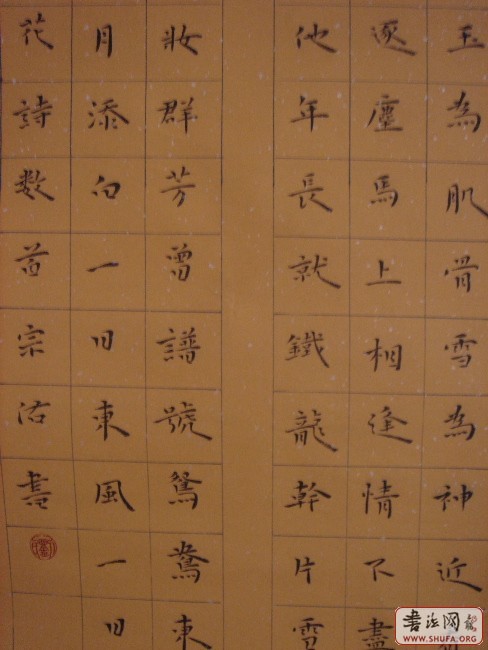 玉為肌骨雪為神近
逐塵馬上相逢情不盡
他年長就鐵龍幹片雪
妝群芳曾譜號鴛鴦東
月添白一旧東風一旧
花詩数首宗沽書
書法网
WWW.SHUFA.ORG